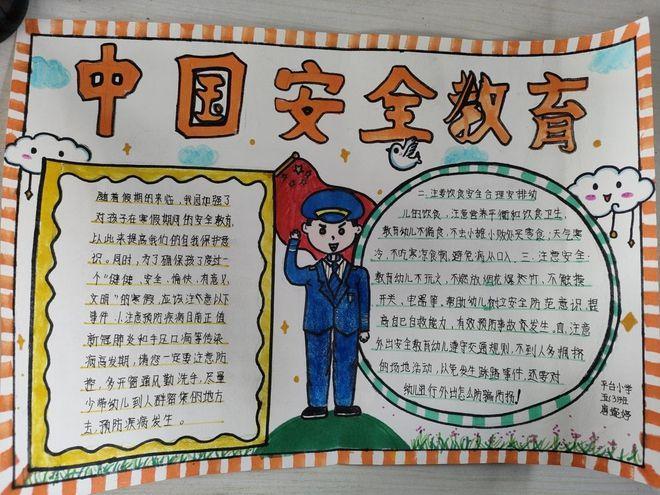 中国安全教育
随着假期的来临，我园加强了
对孩子在寒假期间的安全教育
以此来提高我们的自我保护意
识。同时，为了确保孩子度过一
个"健健、安全、愉快、有意义、
文明"的寒假，应该注意以下
事件：1.注意预防疾病目前正值
新冠肺炎和手足口病等传染
病高发期，请您一定要注意防
控，多开窗通风勤洗手，尽量
少带幼儿到人群密集的地方
去，预防疾病发生。
二、注意饮食安全合理安排幼
儿的饮食，注意营养平衡和饮食卫生，
教育幼儿不偏食，不去小摊小贩处买零食；天气寒
冷，不吃寒凉食物，避免病从口入。三、注意安全：
教育幼儿不玩火、不燃放烟花爆竹，不触摸
开关、电器等，帮助幼儿树立安全防范意识，提
高自己自救能力，有效预防事故发生，四、注意
外出安全教育幼儿遵守交通规则，不到人多拥挤
的场地活动，以免发生踩踏事件，还要对
幼儿进行外出怎么防骗防拐！
平台小学
五(3)班